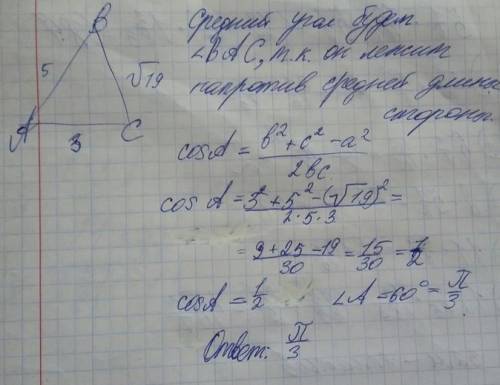 B
5
√19
A
3
C
Средний угол будет
∠BAC, т.к. он лежит
напротив средней длины
стороны.
cosA = b² + c² - a² / 2bc
cos A = 3² + 5² - (√19)² / 2·5·3 =
= 9 + 25 - 19 / 30 = 15/30 = 1/2
cosA = 1/2 ∠A = 60° = П/3
Ответ: П/3